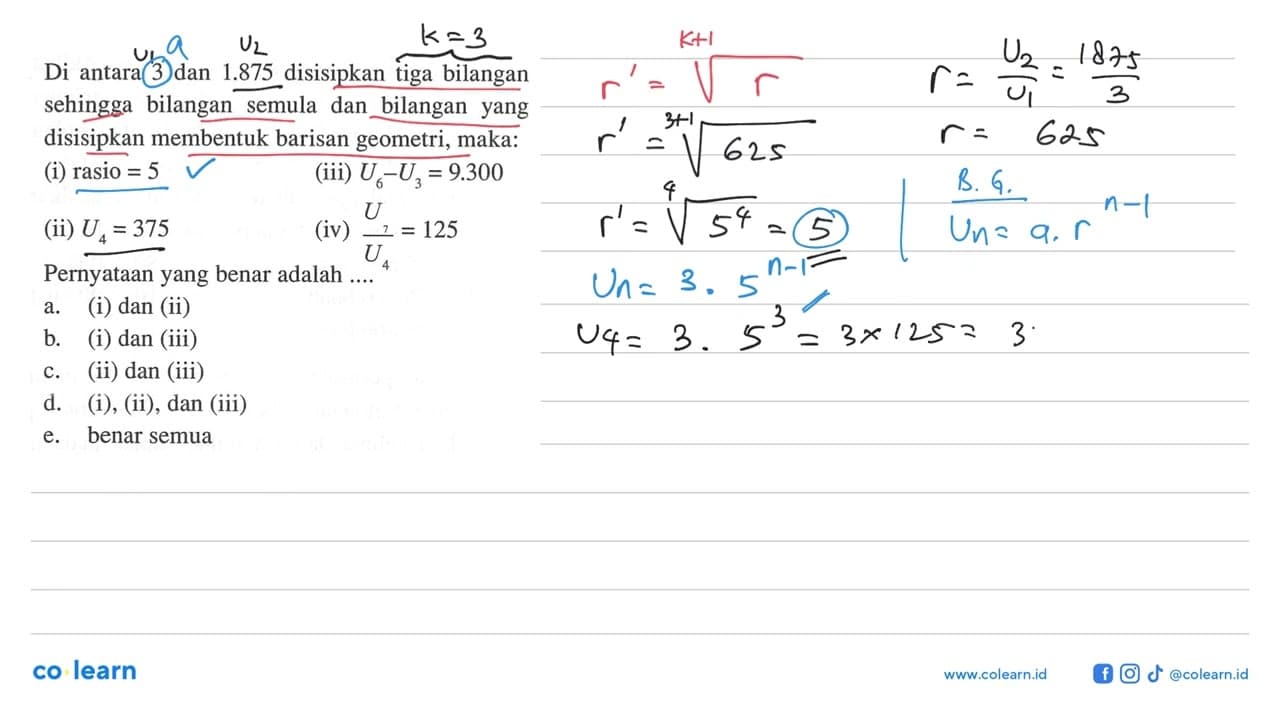 U1 a U2 k = 3
Di antara 3 dan 1.875 disisipkan tiga bilangan
sehingga bilangan semula dan bilangan yang
disisipkan membentuk barisan geometri, maka:
(i) rasio = 5 ✓ (iii) U6–U3 = 9.300
(ii) U4 = 375 (iv) U7/U4 = 125
Pernyataan yang benar adalah ....
a. (i) dan (ii)
b. (i) dan (iii)
c. (ii) dan (iii)
d. (i), (ii), dan (iii)
e. benar semua
r' = ᵏ⁺¹√r
r' = ³⁺¹√625
r' = ⁴√5⁴ = 5
Un = 3 . 5ⁿ⁻¹
U4 = 3 . 5³ = 3 × 125 = 3
r = U2/U1 = 1875/3
r = 625
B.G.
Un = a. rⁿ⁻¹
co learn
www.colearn.id @colearn.id